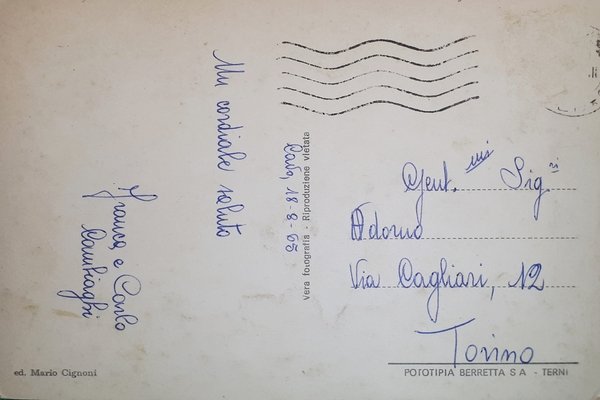 Un cordiale saluto
Franca e Carlo
Cambiaghi
18-8-65
Vera fotografia - Riproduzione vietata
Gent.mi Sig.ri
Adorno
Via Cagliari, 12
Torino
ed. Mario Cignoni
FOTOTIPIA BERRETTA S A - TERNI